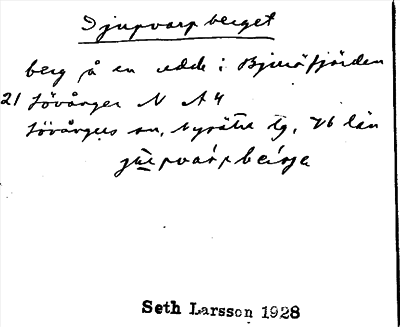 Djupvarpberget
berg på en udde i Bjuröfjärden
21 Lövånger N A4
Lövångers sn, Nysätra tg, Vb län
jʉpvarpbærjə
Seth Larsson 1928